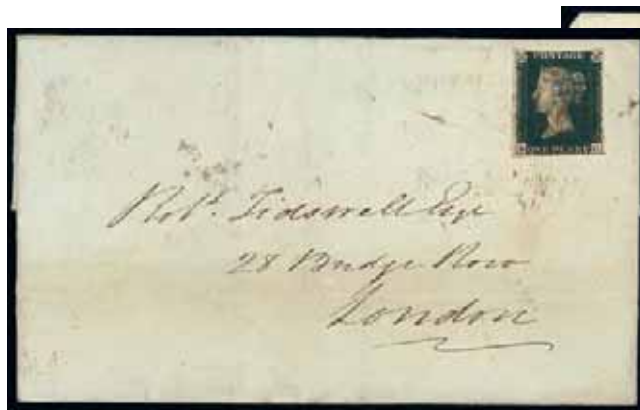 POSTAGE
ONE PENNY
Robt. Tidswell Esqe
28 Budge Row
London